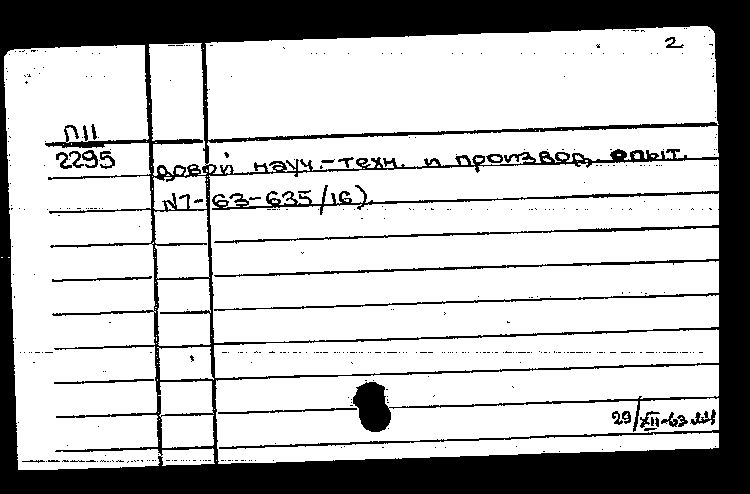 2
П11
2295
довой науч.-техн. и производ. опыт.
№7-63-635/16).
29/XII-63